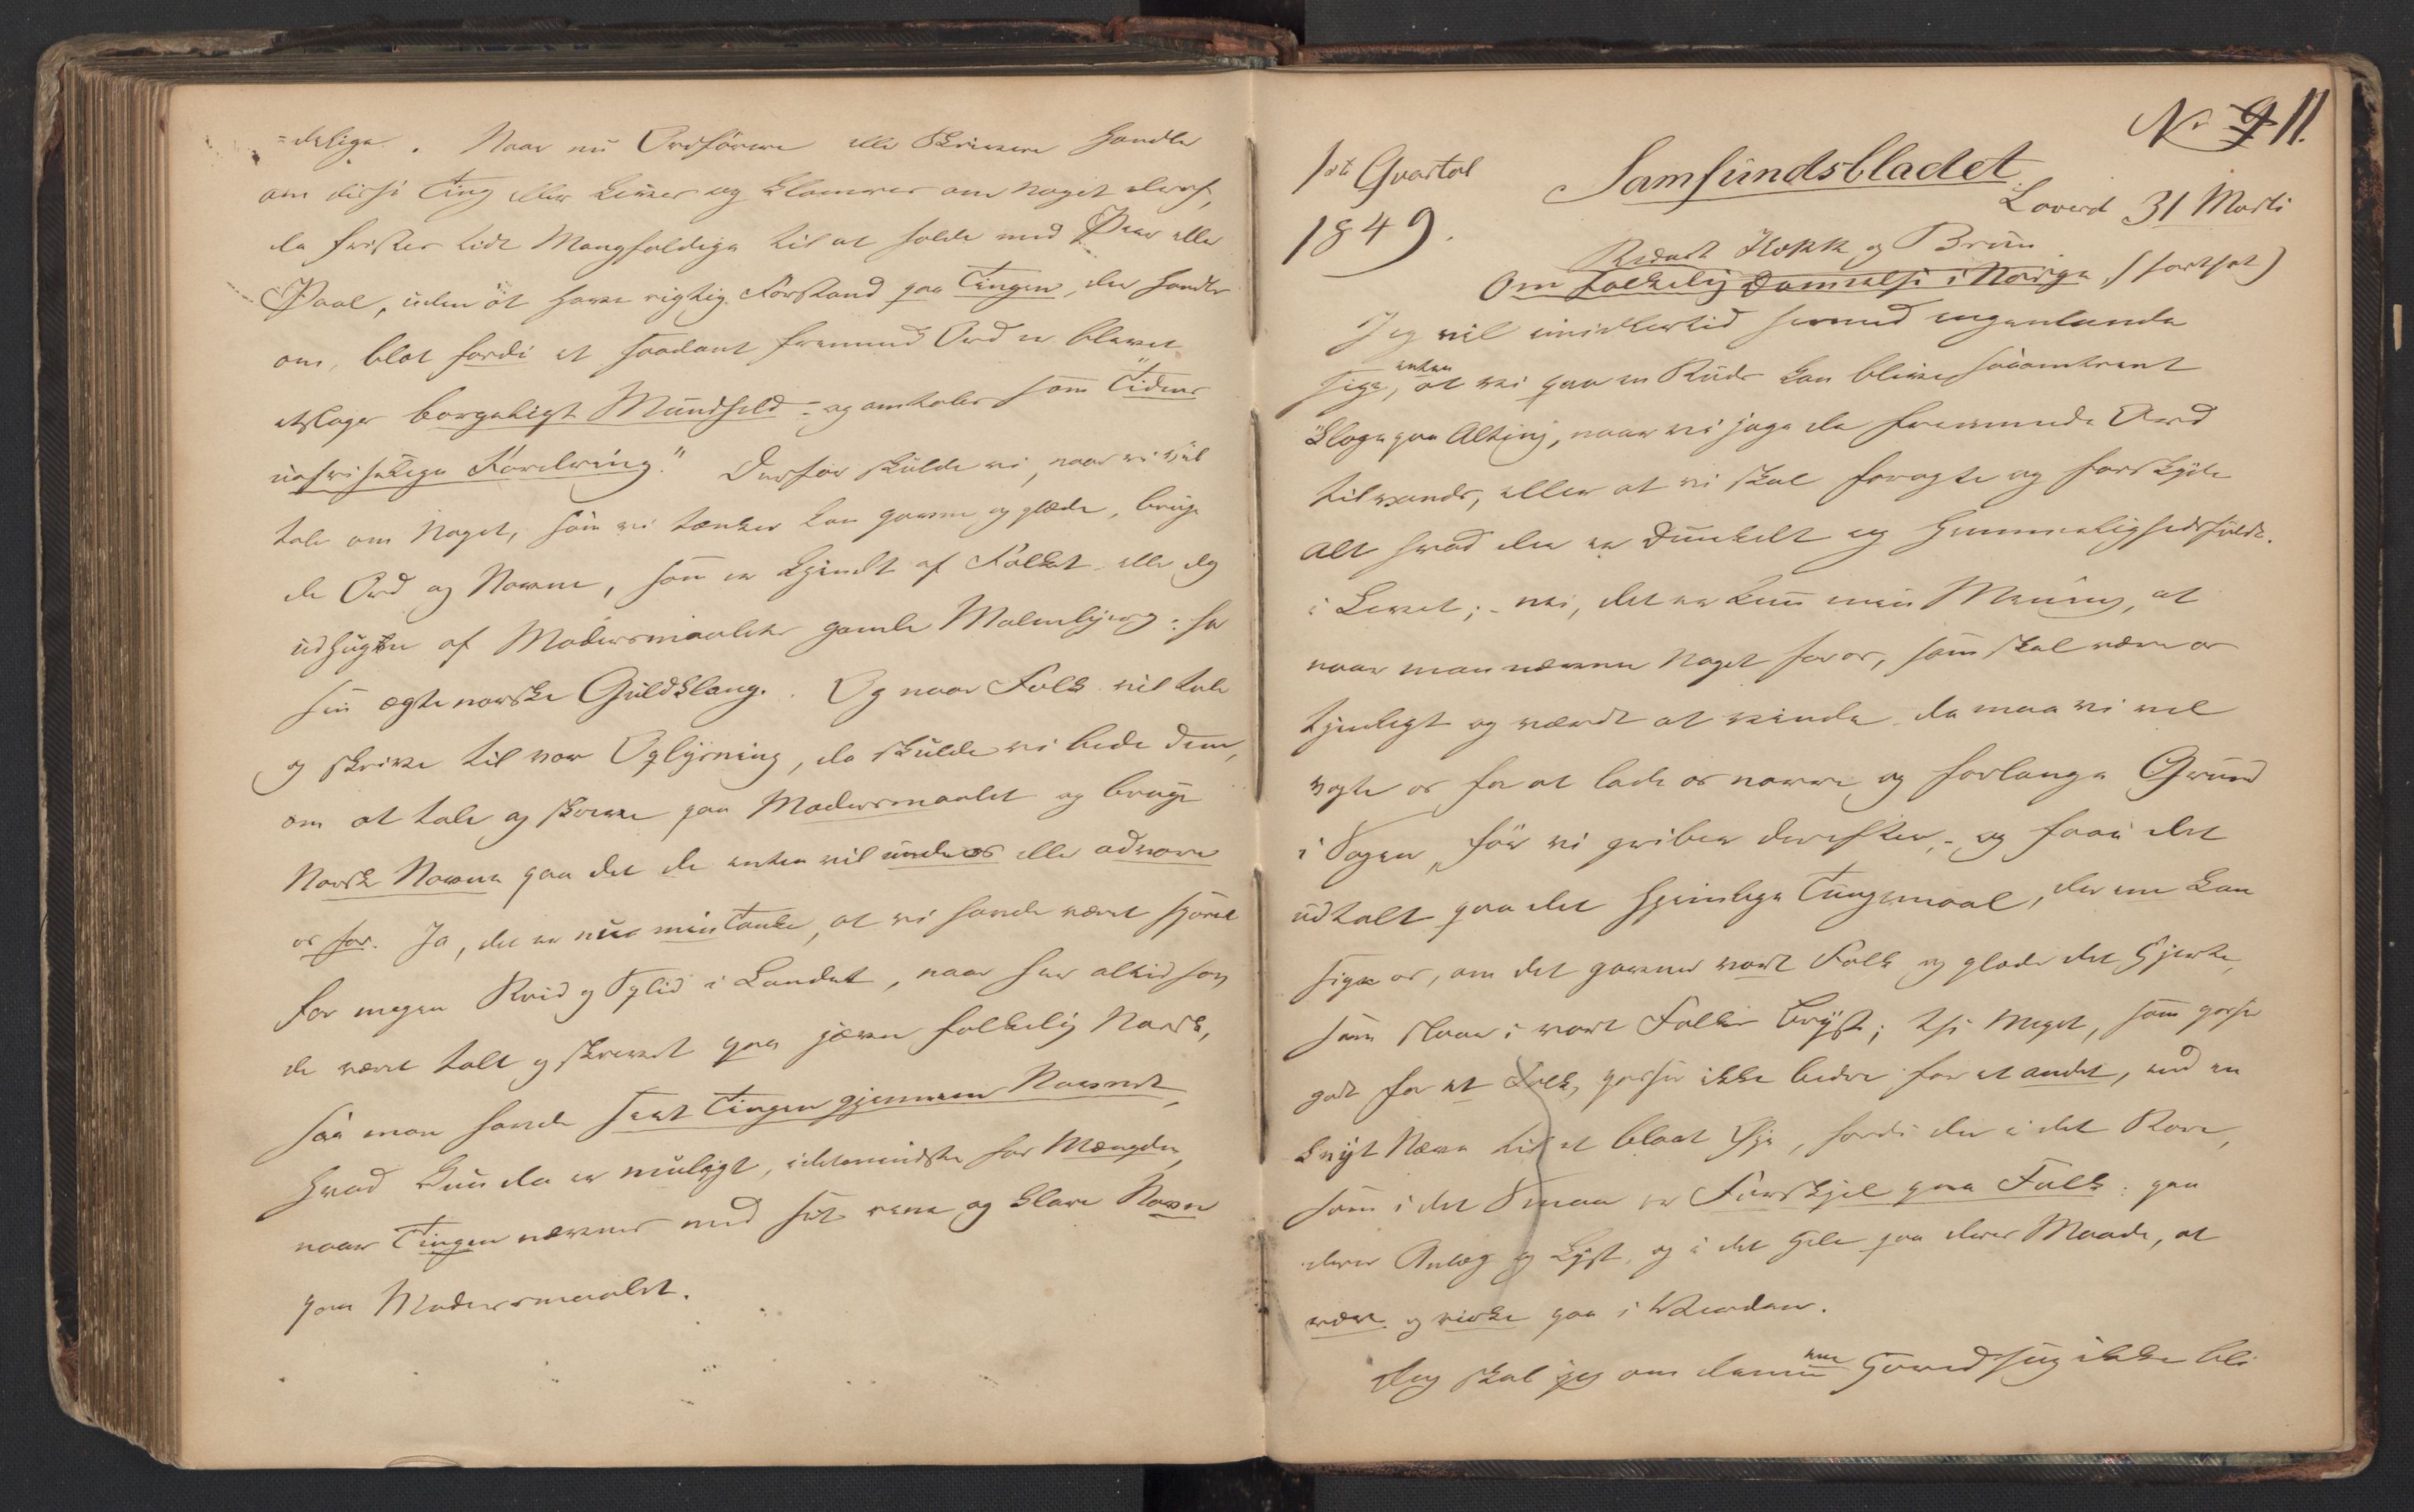 =delige. Naar nu Ordförere elle Skrivere handle
om disse Ting eller leuer og klamrer om noget deraf,
da frister tidt Mangfoldige til at holde med Peer elle
Paal, uden at have rigtig Forstand paa Tingen, der handles
om, blot fordi et saadant fremmed Ord er blevet
etslags borgerligt Mundheld - og omtales som "Tidens
uafviselige Fordring." Derfor skulde vi, naar vi vil
tale om Noget, som vi tænker kan gavne og glæde, bruge
de Ord og Navne, som er kjendt af Folket elle dog
udhugne af Modersmaalets gamle Malmbjerg: ha
sin ægte norske Guldklang. Og naar Folk vil tale
og skrive til vor Oplysning, da skulde vi bede dem,
om at tale og skrive paa Modersmaalet og bruge
Norske Navne paa det de enten vil unde os elle advare
os for. Ja, det er nu min Tanke, at vi havde været sparet
for megen Kvid og Split i Landet, naar her altid hav
de været talt og skrevet paa jævn folkelig Norsk,
saa man havde seet Tingen gjennem Navnet,
hvad kun da er muligt, idetmindste for Mængden,
naar Tingen nævnes med sit rene og klare Navn
paa Modersmaalet.
No 9 11.
1ste Qvartal
Samfundsbladet
Laverd 31 Marti
1849.
Redact Kokk og Bruun
Om folkelig Dannelse i Norge (fortsat)
Jeg vil imidlertid hermed ingenlunde
sige, enten at vi paa en Stund kan blive saaomtrent
kloge paa Alting, naar vi jage de fremmede Ord
tilvands, eller at vi skal foragte og forskyde
alt hvad der er Dunkelt og Hemmelighedsfuldt
i Livet; - nei, det er kun min Mening, at
naar man nævner Noget for os, som skal være os
tjenligt og værdt at vinde da maa vi vel
vogte os for at lade os narre, og forlange Grund
i Sagen, för vi griber derefter, - og faaí det
udtalt paa det hjemlige Tungemaal, der ene kan
sige os, om det gavner vort Folk og glæde det Hjerte,
som slaaer i vort Folks Bryst; thi Meget, som passer
godt for et Folk, passer ikke bedre for et andet, end en
knyt Næve til et blaat Øje, fordi der i det Store,
som i det Smaa er Forskjel paa Folk: paa
deres Anlæg og Lyst, og i det Hele paa deres Maade, at
være og virke paa i Verden.
Dog skal jeg om denne Hovedsag ikke bli